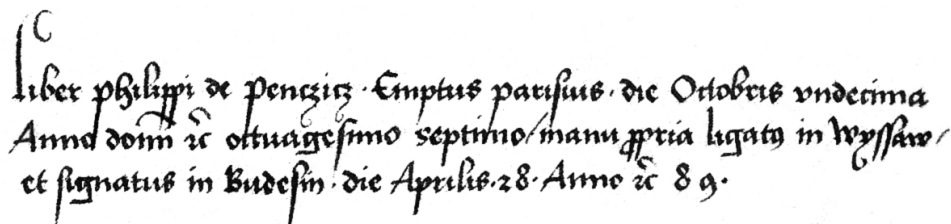 C
Liber philippi de Penczicz · Emptus parisius · die Octobris vndecima
Anno domī ꝛc̄ octuagesimo septimo / manu ꝓpria ligatꝰ in Wyssaw /
et signatus in Budesin · die Aprilis · 28 · Anno ꝛc̄ 89 ·